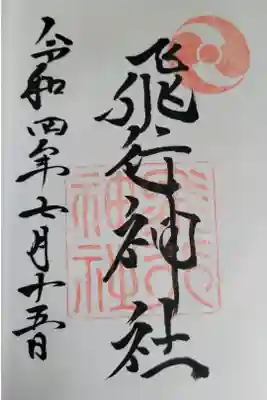 飛行神社
令和四年七月十五日
飛行神社